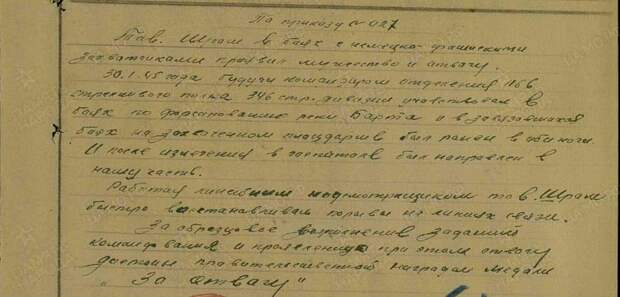 По приказу № 027
Тов. Шрам в боях с немецко-фашискими
захватчиками проявил мужество и отвагу.
30.1.45 года будучи командиром отделения 1166
стрелкового полка 346 стр. дивизии участвовал в
боях по форсированию реки Барта и в завязавшихся
боях на захваченном плацдарме был ранен в обе ноги.
И после излечения в госпитале был направлен в
нашу часть.
Работая линейным надсмотрщиком тов. Шрам
быстро востанавливал порывы на линиях связи.
За образцовое выполнение заданий
командования и проявленную при этом отвагу
достоин правительственной награды медали
"За отвагу"